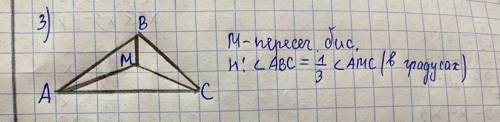 3)
B
M
A
C
M-пересеч. бис.
Н! ∠ABC = 1/3 ∠AMC (в градусах)